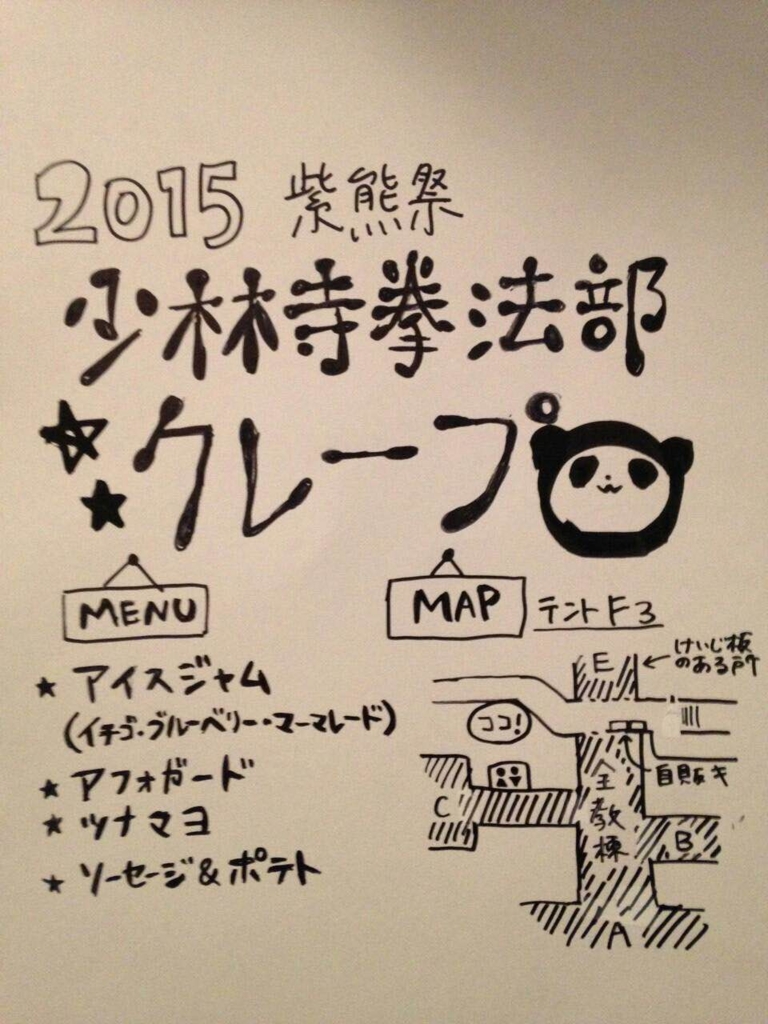 2015 紫熊祭
少林寺拳法部
クレープ
MENU
★ アイスジャム
(イチゴ・ブルーベリー・マーマレード)
★ アフォガード
★ ツナマヨ
★ ソーセージ&ポテト
MAP テントF3
E
←けいじ板
のある所
ココ!
自販キ
全教棟
C
B
A